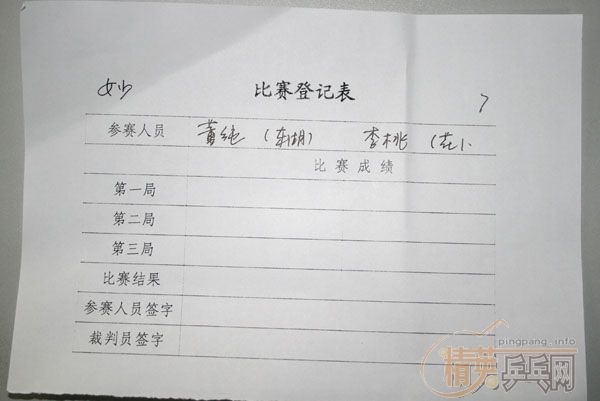 比赛登记表
7
参赛人员 黄纯 (东湖) 李桃 (花小
比赛成绩
第一局
第二局
第三局
比赛结果
参赛人员签字
裁判员签字
pingpang.info
精英乒乓网